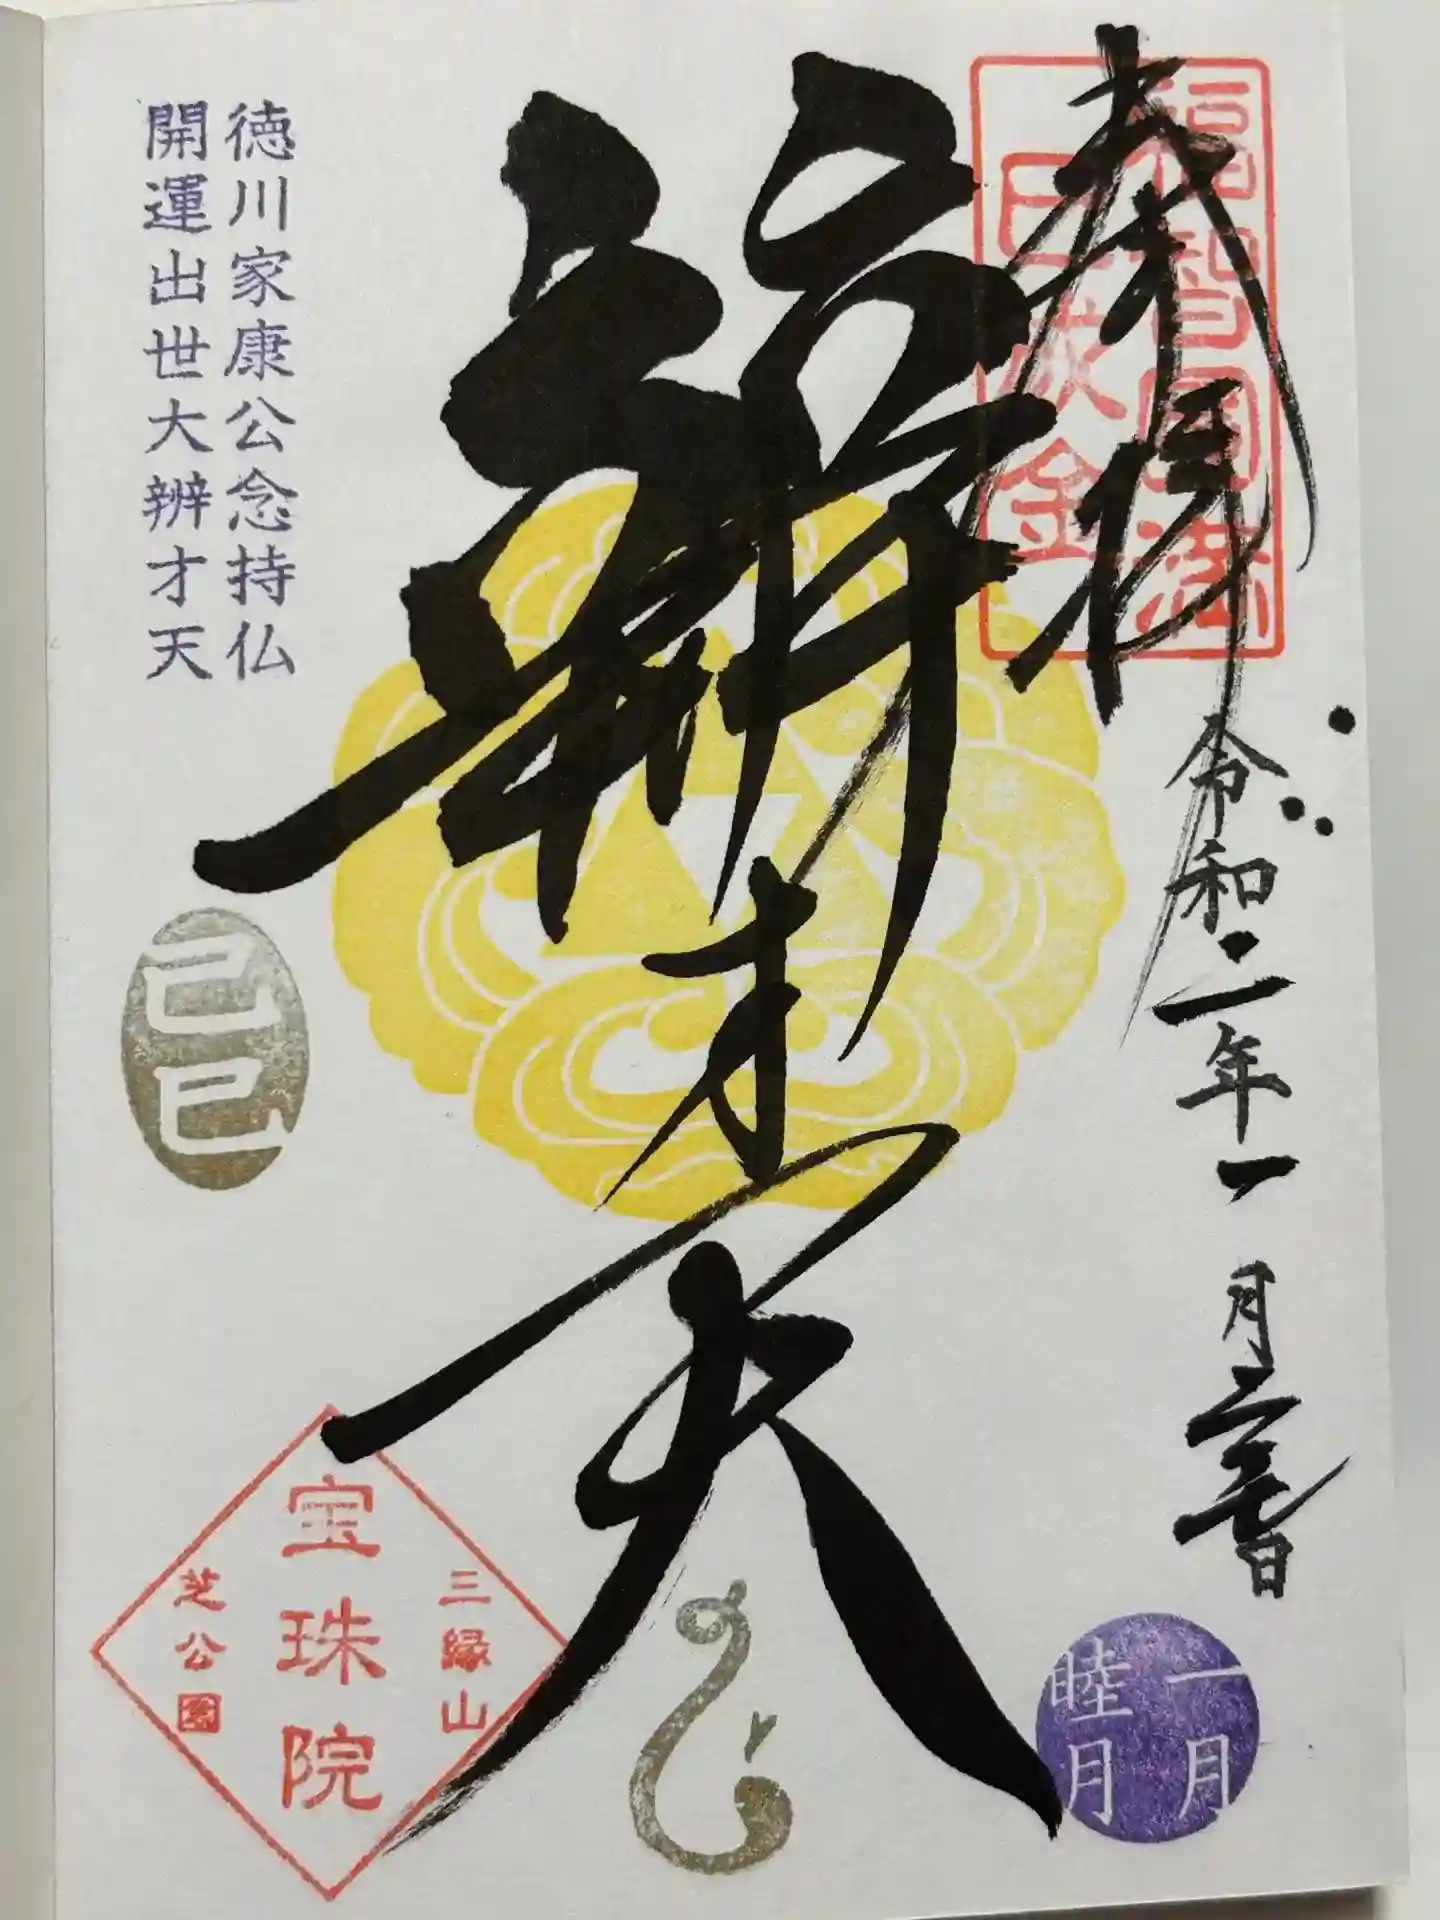 奉拝
令和二年一月
福智圓満
巳成金
一月
睦月
辨才天
徳川家康公念持仏
開運出世大辨才天
己巳
三縁山
宝珠院
芝公園